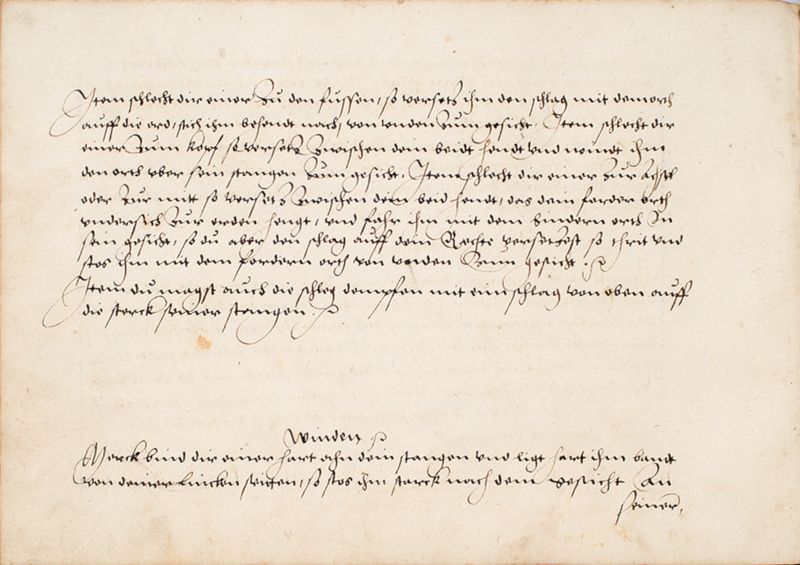 Item schlecht dir einer zu den fussen, so versetz ihm den schlag mit dem orth
auff die erd, stich ihm behendt nach, von vnden zum gesicht. Item schlecht dir
einer zum kopf so versetz zwischen dein beidt hendt vnd windt ihm
den orth vber sein stangen zum gesicht. Item schlecht dir einer zur achsel
oder zur mitt so versetz zwischen dein beid hendt, das dein forder orth
vndersich zur erden hengt, vnd fahr ihm mit dem hindern orth in
sein gesicht, so du aber den schlag auff dein Rechte versetzest so thrit vnd
stos ihm mit dem fordern orth von vnden zum gesicht.
Item du magst auch die schleg dempfen mit eim schlag von oben auff
die sterck seiner stangen.
Winden
Merck bind dir einer hart ahn dein stangen vnd ligt hart ihm bandt
von deiner lincken seitten, so stos ihm starck nach dem gesicht zu
seiner,